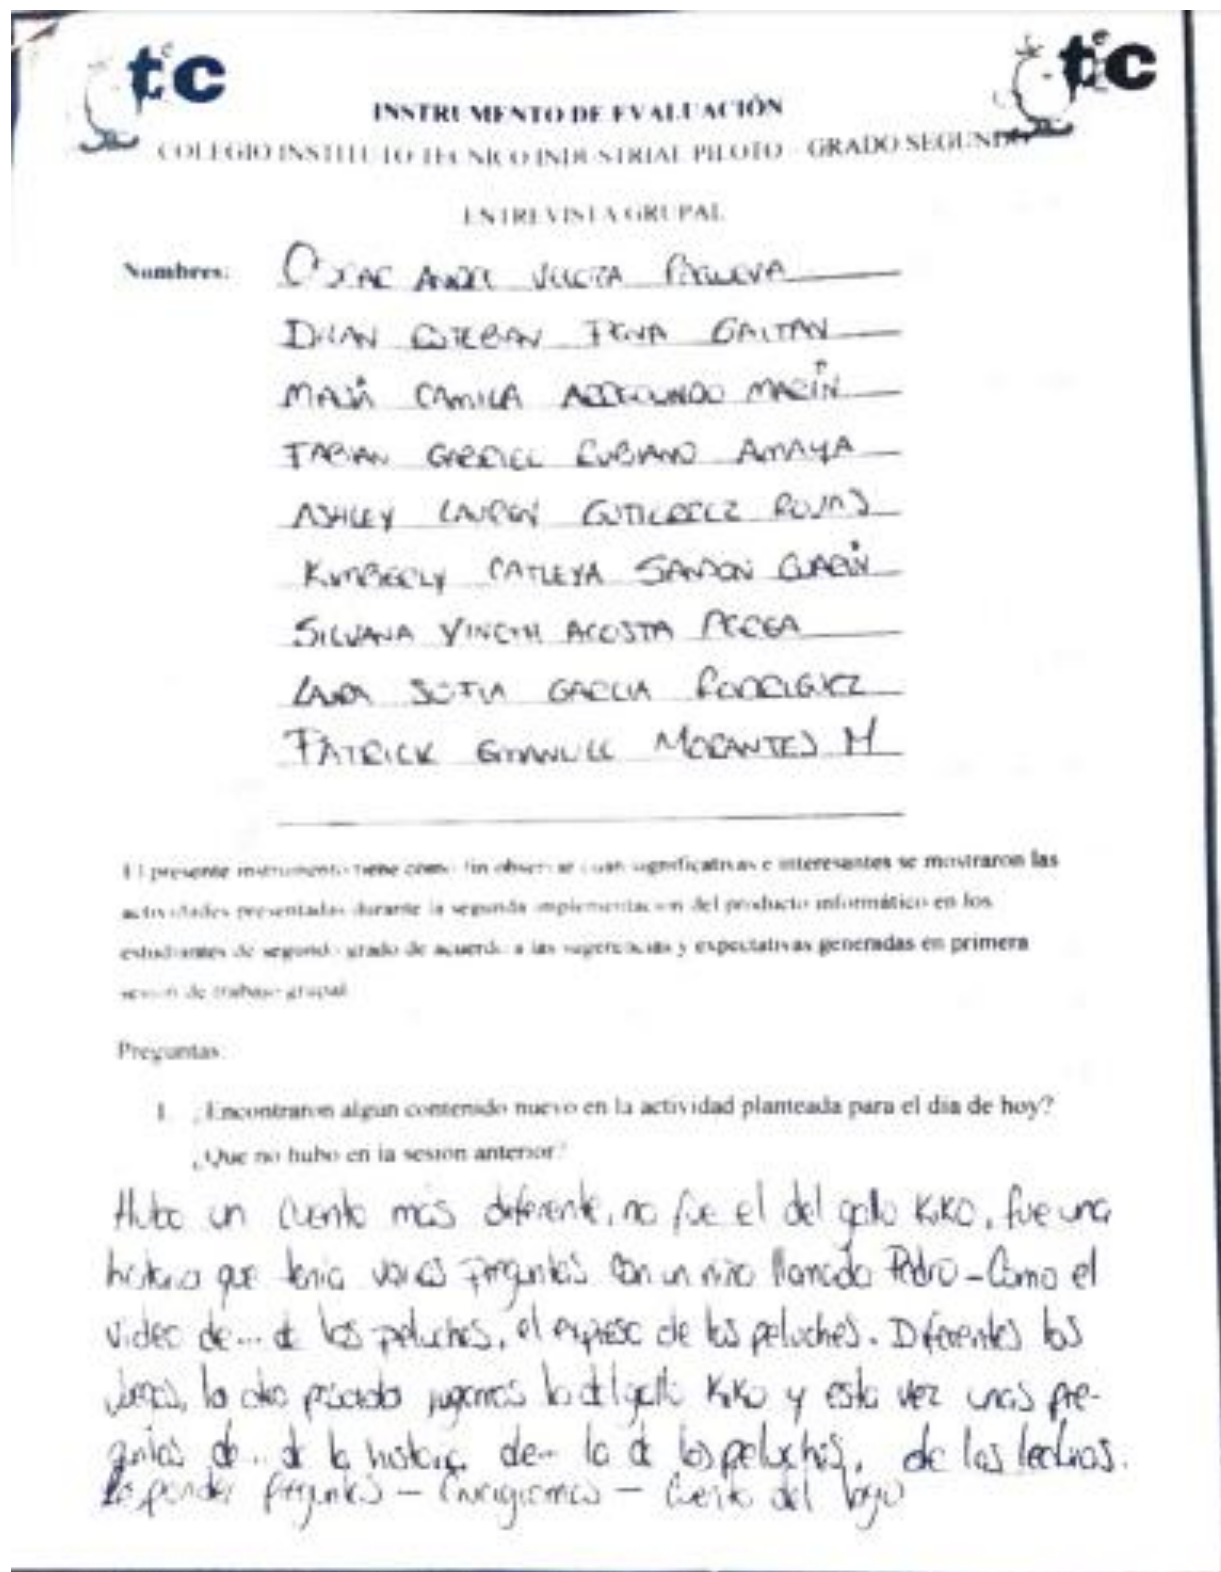 tic
tic
INSTRUMENTO DE EVALUACIÓN
COLEGIO INSTITUTO TECNICO INDUSTRIAL PILOTO - GRADO SEGUNDO
ENTREVISTA GRUPAL
Nombres:
OSCAR ANGEL
DILAN ESTEBAN PEÑA GAITAN
CAMILA MARÍN
FABIAN GABRIEL RUBIANO AMAYA
ASHLEY LAUREN GUTIERREZ ROJAS
KIMBERLY CATLEYA GUARÍN
SILVANA YINETH ACOSTA PEREA
LAURA SOFIA GARCIA RODRIGUEZ
PATRICK EMANUEL MORANTES M
El presente instrumento tiene como fin observar cuan significativas e interesantes se mostraron las
actividades presentadas durante la segunda implementación del producto informático en los
estudiantes de segundo grado de acuerdo a las sugerencias y expectativas generadas en primera
sesion de trabajo grupal
Preguntas:
1. ¿Encontraron algun contenido nuevo en la actividad planteada para el dia de hoy?
¿Que no hubo en la sesion anterior?
Hubo un cuento más diferente, no fue el del gallo Kiko, fue una
historia que tenia varias preguntas con un niño llamado Pedro - Como el
video de... de los peluches, el expreso de los peluches. Diferentes los
juegos, la otra pasada jugamos lo del gallo Kiko y esta vez unas pre-
guntas de... de la historia de... la de los peluches, de las lecturas.
Responder preguntas - Crucigramas - Cuento del